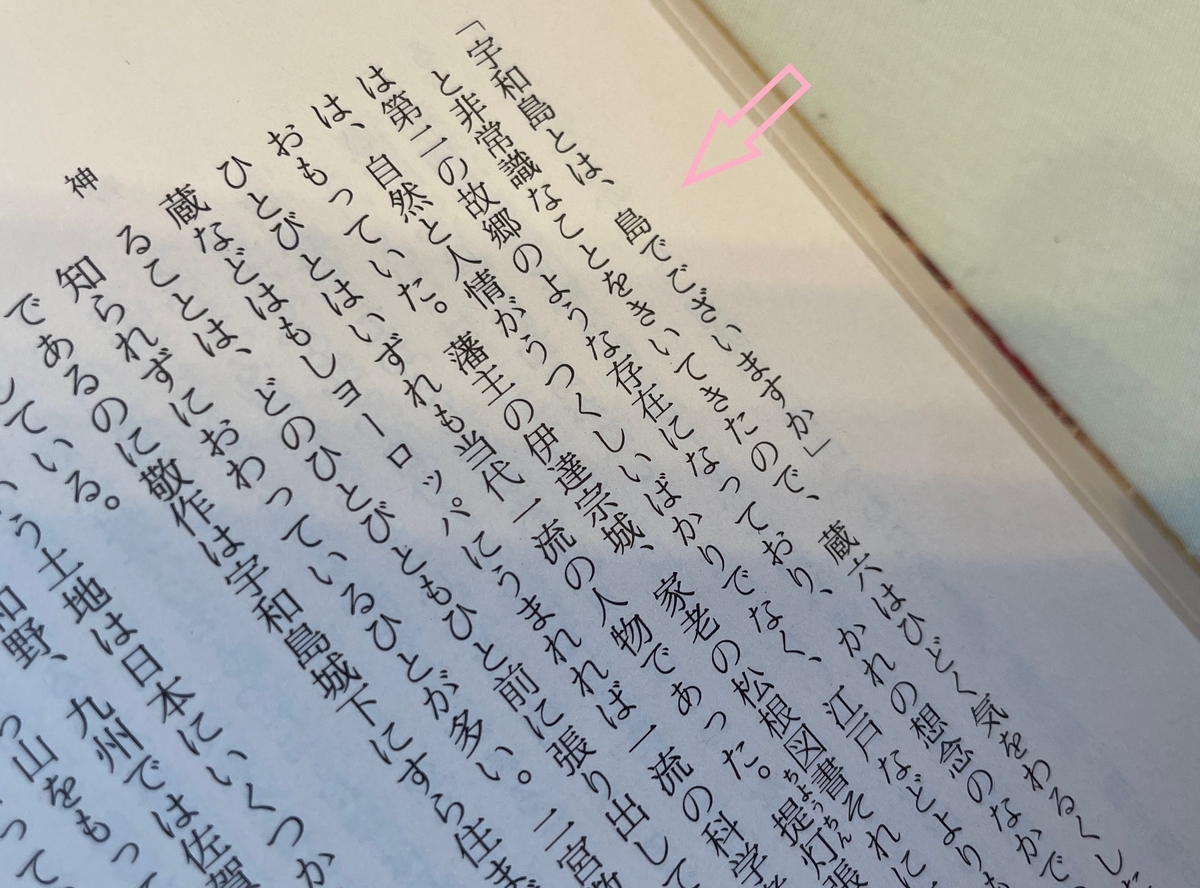 「宇和島とは、島でございますか」
と非常識なことをきいてきたので、蔵六はひどく気をわるくし
は第二の故郷のような存在になっており、かれの想念のなかで
は、自然と人情がうつくしいばかりでなく、江戸などよりも
おもっていた。藩主の伊達宗城、家老の松根図書それに
ひとびとはいずれも当代一流の人物であった。提灯張
蔵などはもしヨーロッパにうまれれば一流の科学
ることは、どのひとびともひと前に張り出して
知られずにおわっているひとが多い。二宮敬
であるのに敬作は宇和島城下にすら住ま
している。
う土地は日本にいくつか
和野、九州では佐賀
山をもっ
って
神